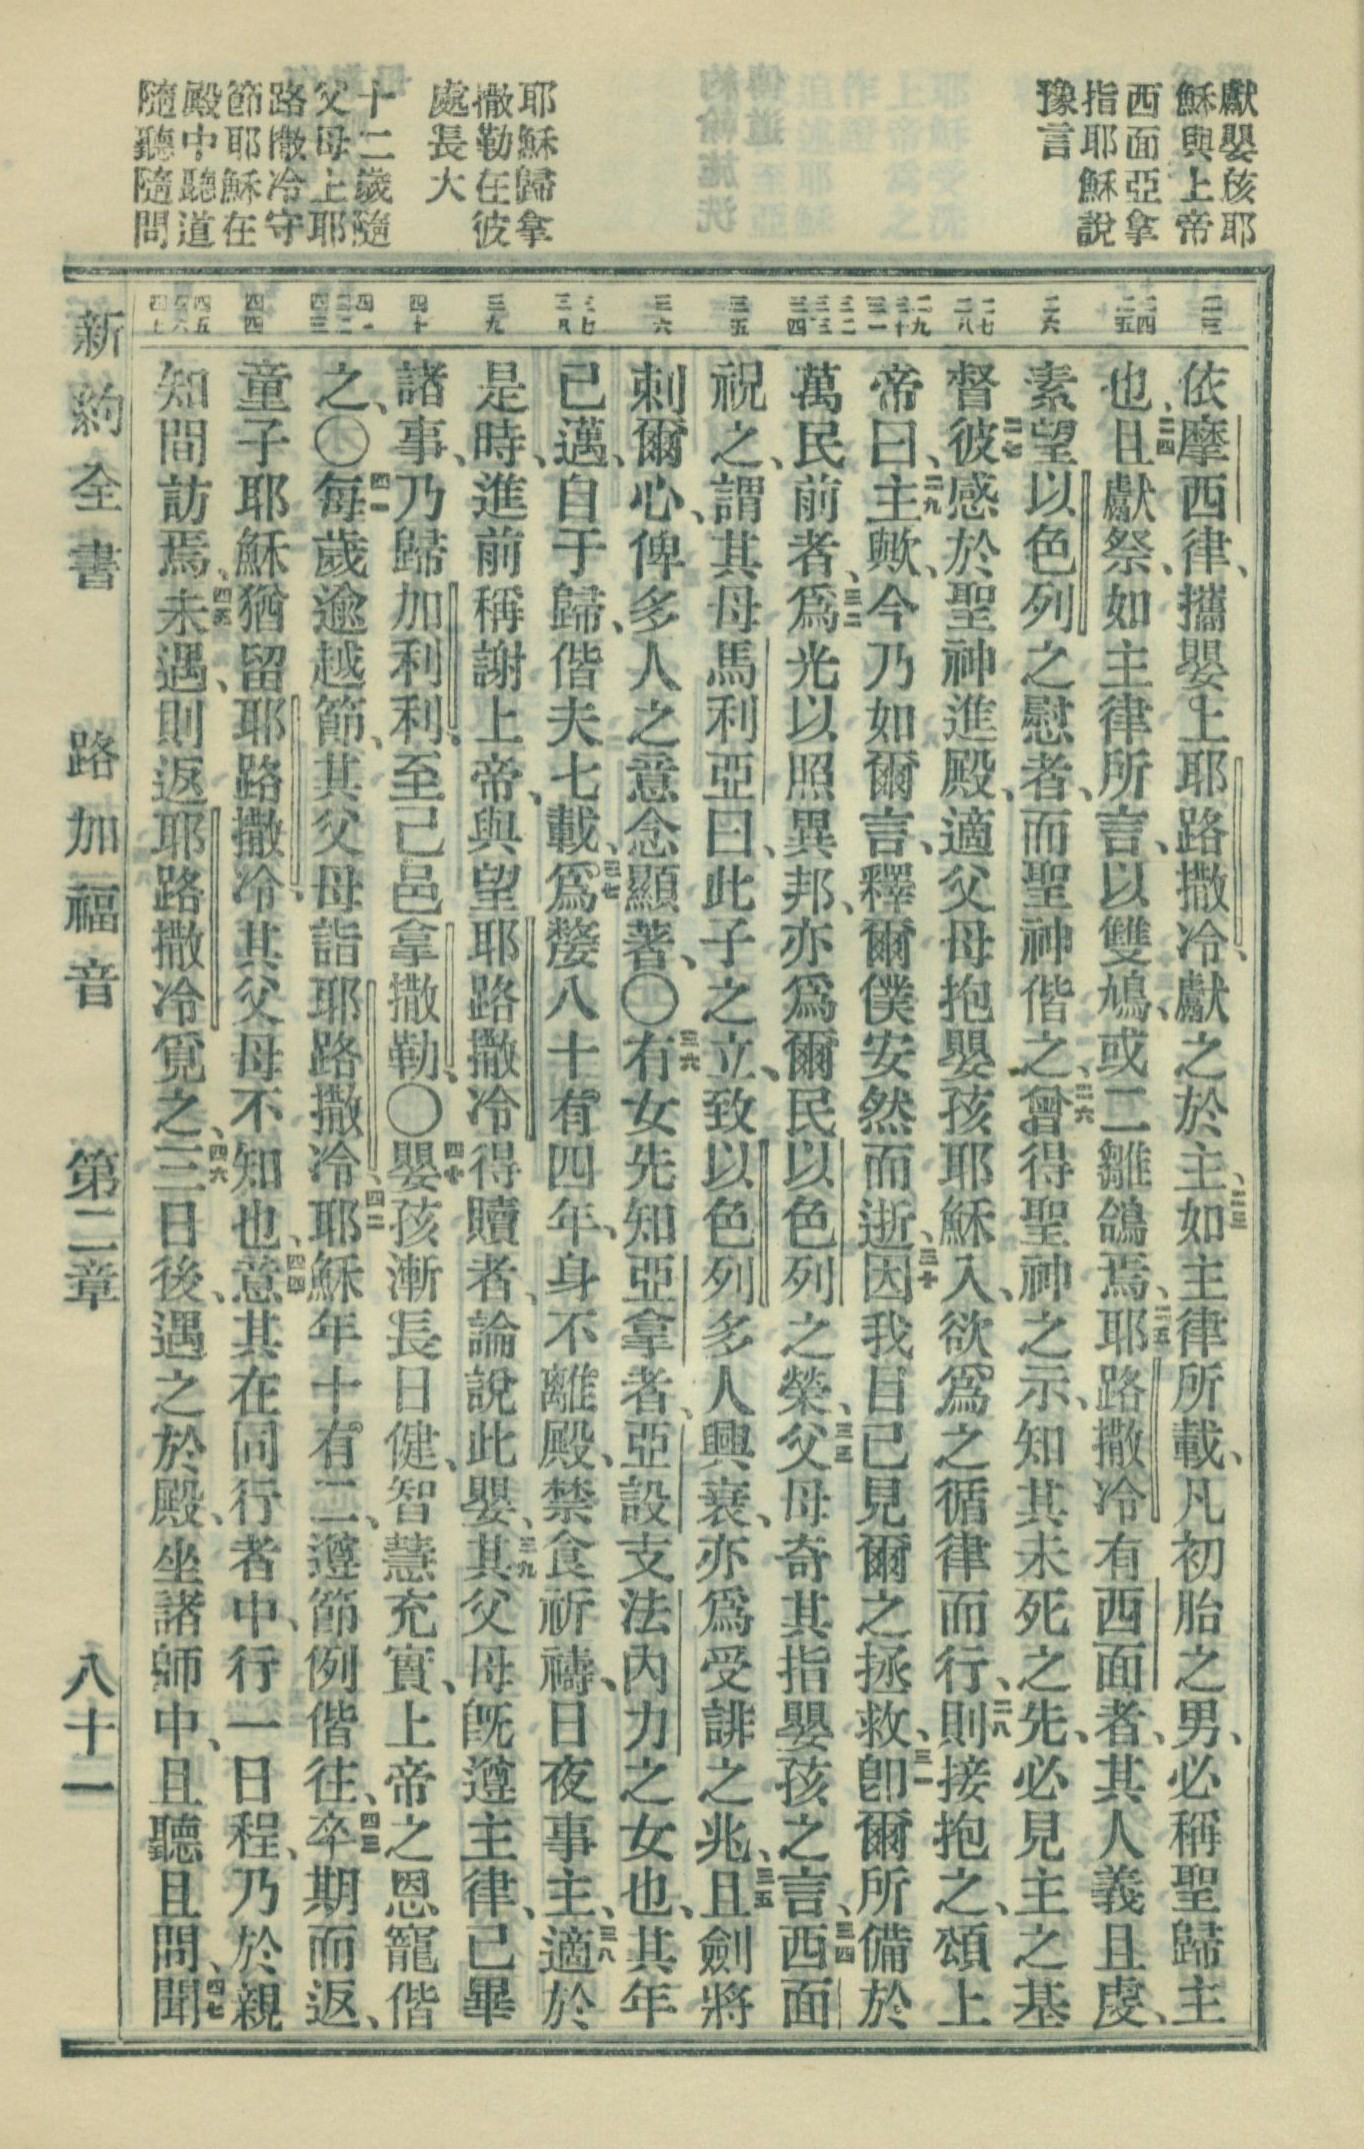 獻嬰孩耶
穌與上帝
西面亞拿
指耶穌說
豫言
耶穌歸拿
撒勒在彼
處長大
十二歲隨
父母上耶
路撒冷守
節耶穌在
殿中聽道
隨聽隨問
二三
二四 二五
二六
二七 二八
二九 三十 三一
三二 三三 三四
三五
三六
三七 三八
三九
四十
四一 四二 四三
四四
四五 四六 四七
依摩西律、攜嬰上耶路撒冷、獻之於主、二三如主律所載、凡初胎之男、必稱聖歸主
也、二四且獻祭、如主律所言、以雙鳩、或二雛鴿焉、二五耶路撒冷有西面者、其人義且虔、
素望以色列之慰者、而聖神偕之、二六曾得聖神之示、知其未死之先、必見主之基
督、二七彼感於聖神進殿、適父母抱嬰孩耶穌入、欲爲之循律而行、二八則接抱之、頌上
帝曰、二九主歟、今乃如爾言、釋爾僕安然而逝、三十因我目已見爾之拯救、三一卽爾所備於
萬民前者、三二爲光以照異邦、亦爲爾民以色列之榮、三三父母奇其指嬰孩之言、三四西面
祝之、謂其母馬利亞曰、此子之立、致以色列多人興衰、亦爲受誹之兆、三五且劍將
刺爾心、俾多人之意念顯著、〇三六有女先知亞拿者、亞設支法內力之女也、其年
已邁、自于歸、偕夫七載、三七爲嫠八十有四年、身不離殿、禁食祈禱、日夜事主、三八適於
是時、進前稱謝上帝、與望耶路撒冷得贖者、論說此嬰、三九其父母旣遵主律、已畢
諸事、乃歸加利利、至己邑拿撒勒、〇四十嬰孩漸長日健、智慧充實、上帝之恩寵偕
之、〇四一每歲逾越節、其父母詣耶路撒冷、四二耶穌年十有二、遵節例偕往、四三卒期而返、
童子耶穌猶留耶路撒冷、其父母不知也、四四意其在同行者中、行一日程、乃於親
知間訪焉、四五未遇、則返耶路撒冷覓之、四六三日後、遇之於殿、坐諸師中、且聽且問、四七聞
新約全書 路加福音 第二章 八十一